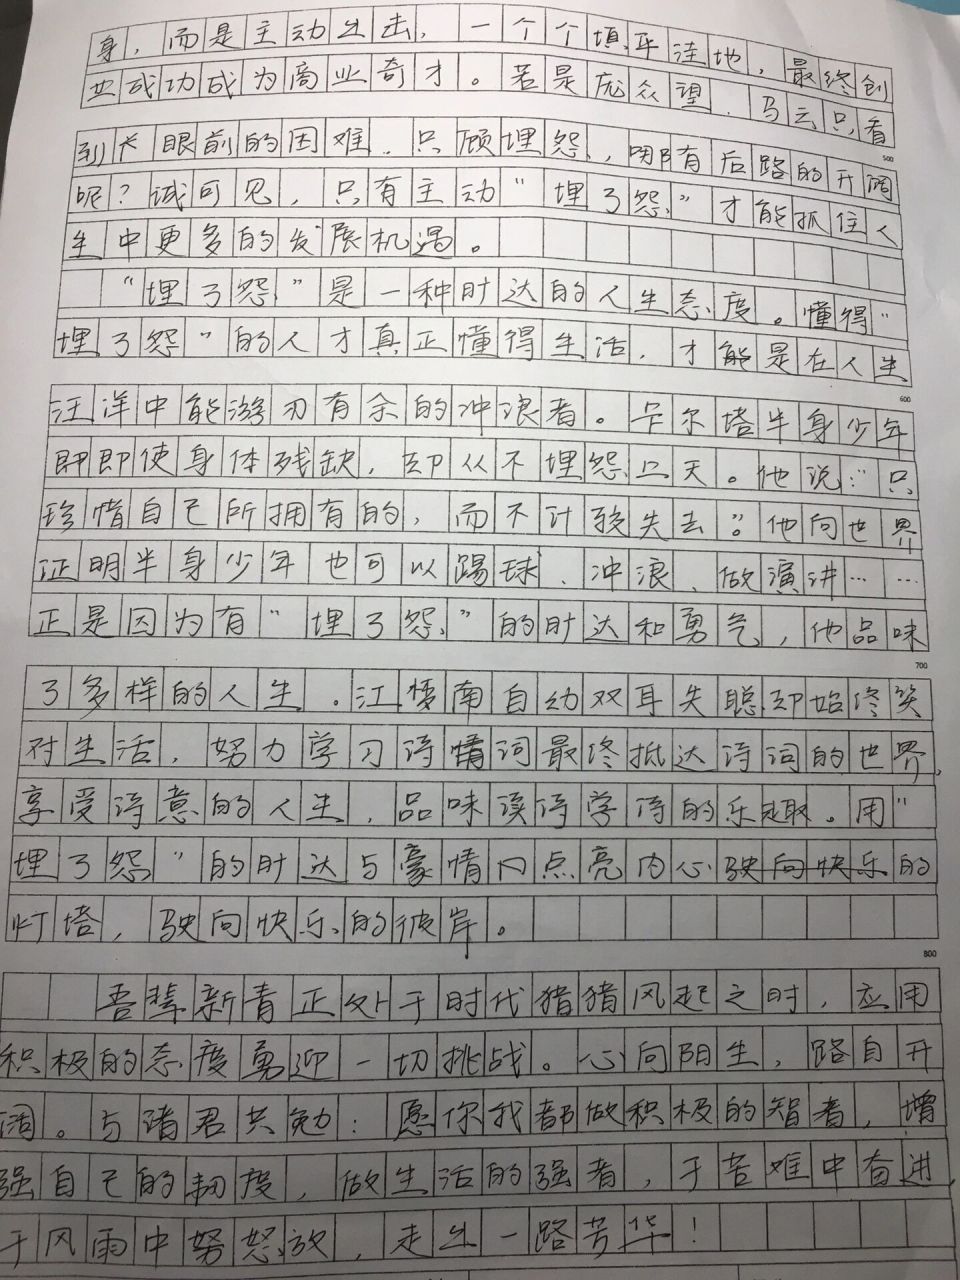 身，而是主动出击，一个个填平洼地，最终创
业成功成为商业奇才。若是庞众望、马云只看
到大眼前的困难，只顾埋怨，哪有后路的开阔
500
呢？诚可见，只有主动“埋了怨”才能抓住人
生中更多的发展机遇。
“埋了怨”是一种时达的人生态度。懂得“
埋了怨”的人才真正懂得生活，才能是在人生
600
汪洋中能游刃有余的冲浪者。卡尔塔半身少年
即即使身体残缺，却从不埋怨上天。他说：“只
珍惜自己所拥有的，而不计较失去”。他向世界
证明半身少年也可以踢球、冲浪、做演讲……
正是因为有“埋了怨”的时达和勇气，他品味
700
了多样的人生。江梦南自幼双耳失聪却始终笑
对生活，努力学习诗情词最终抵达诗词的世界，
享受诗意的人生，品味读诗学诗的乐趣。用“
埋了怨”的时达与豪情内点亮内心驶向快乐的
灯塔，驶向快乐的彼岸。
800
吾辈新青正处于时代猎猎风起之时，应用
积极的态度勇迎一切挑战。心向阳生，路自开
阔。与诸君共勉：愿你我都做积极的智者，增
强自己的韧度，做生活的强者，于苦难中奋进，
于风雨中努怒放，走出一路芳华！